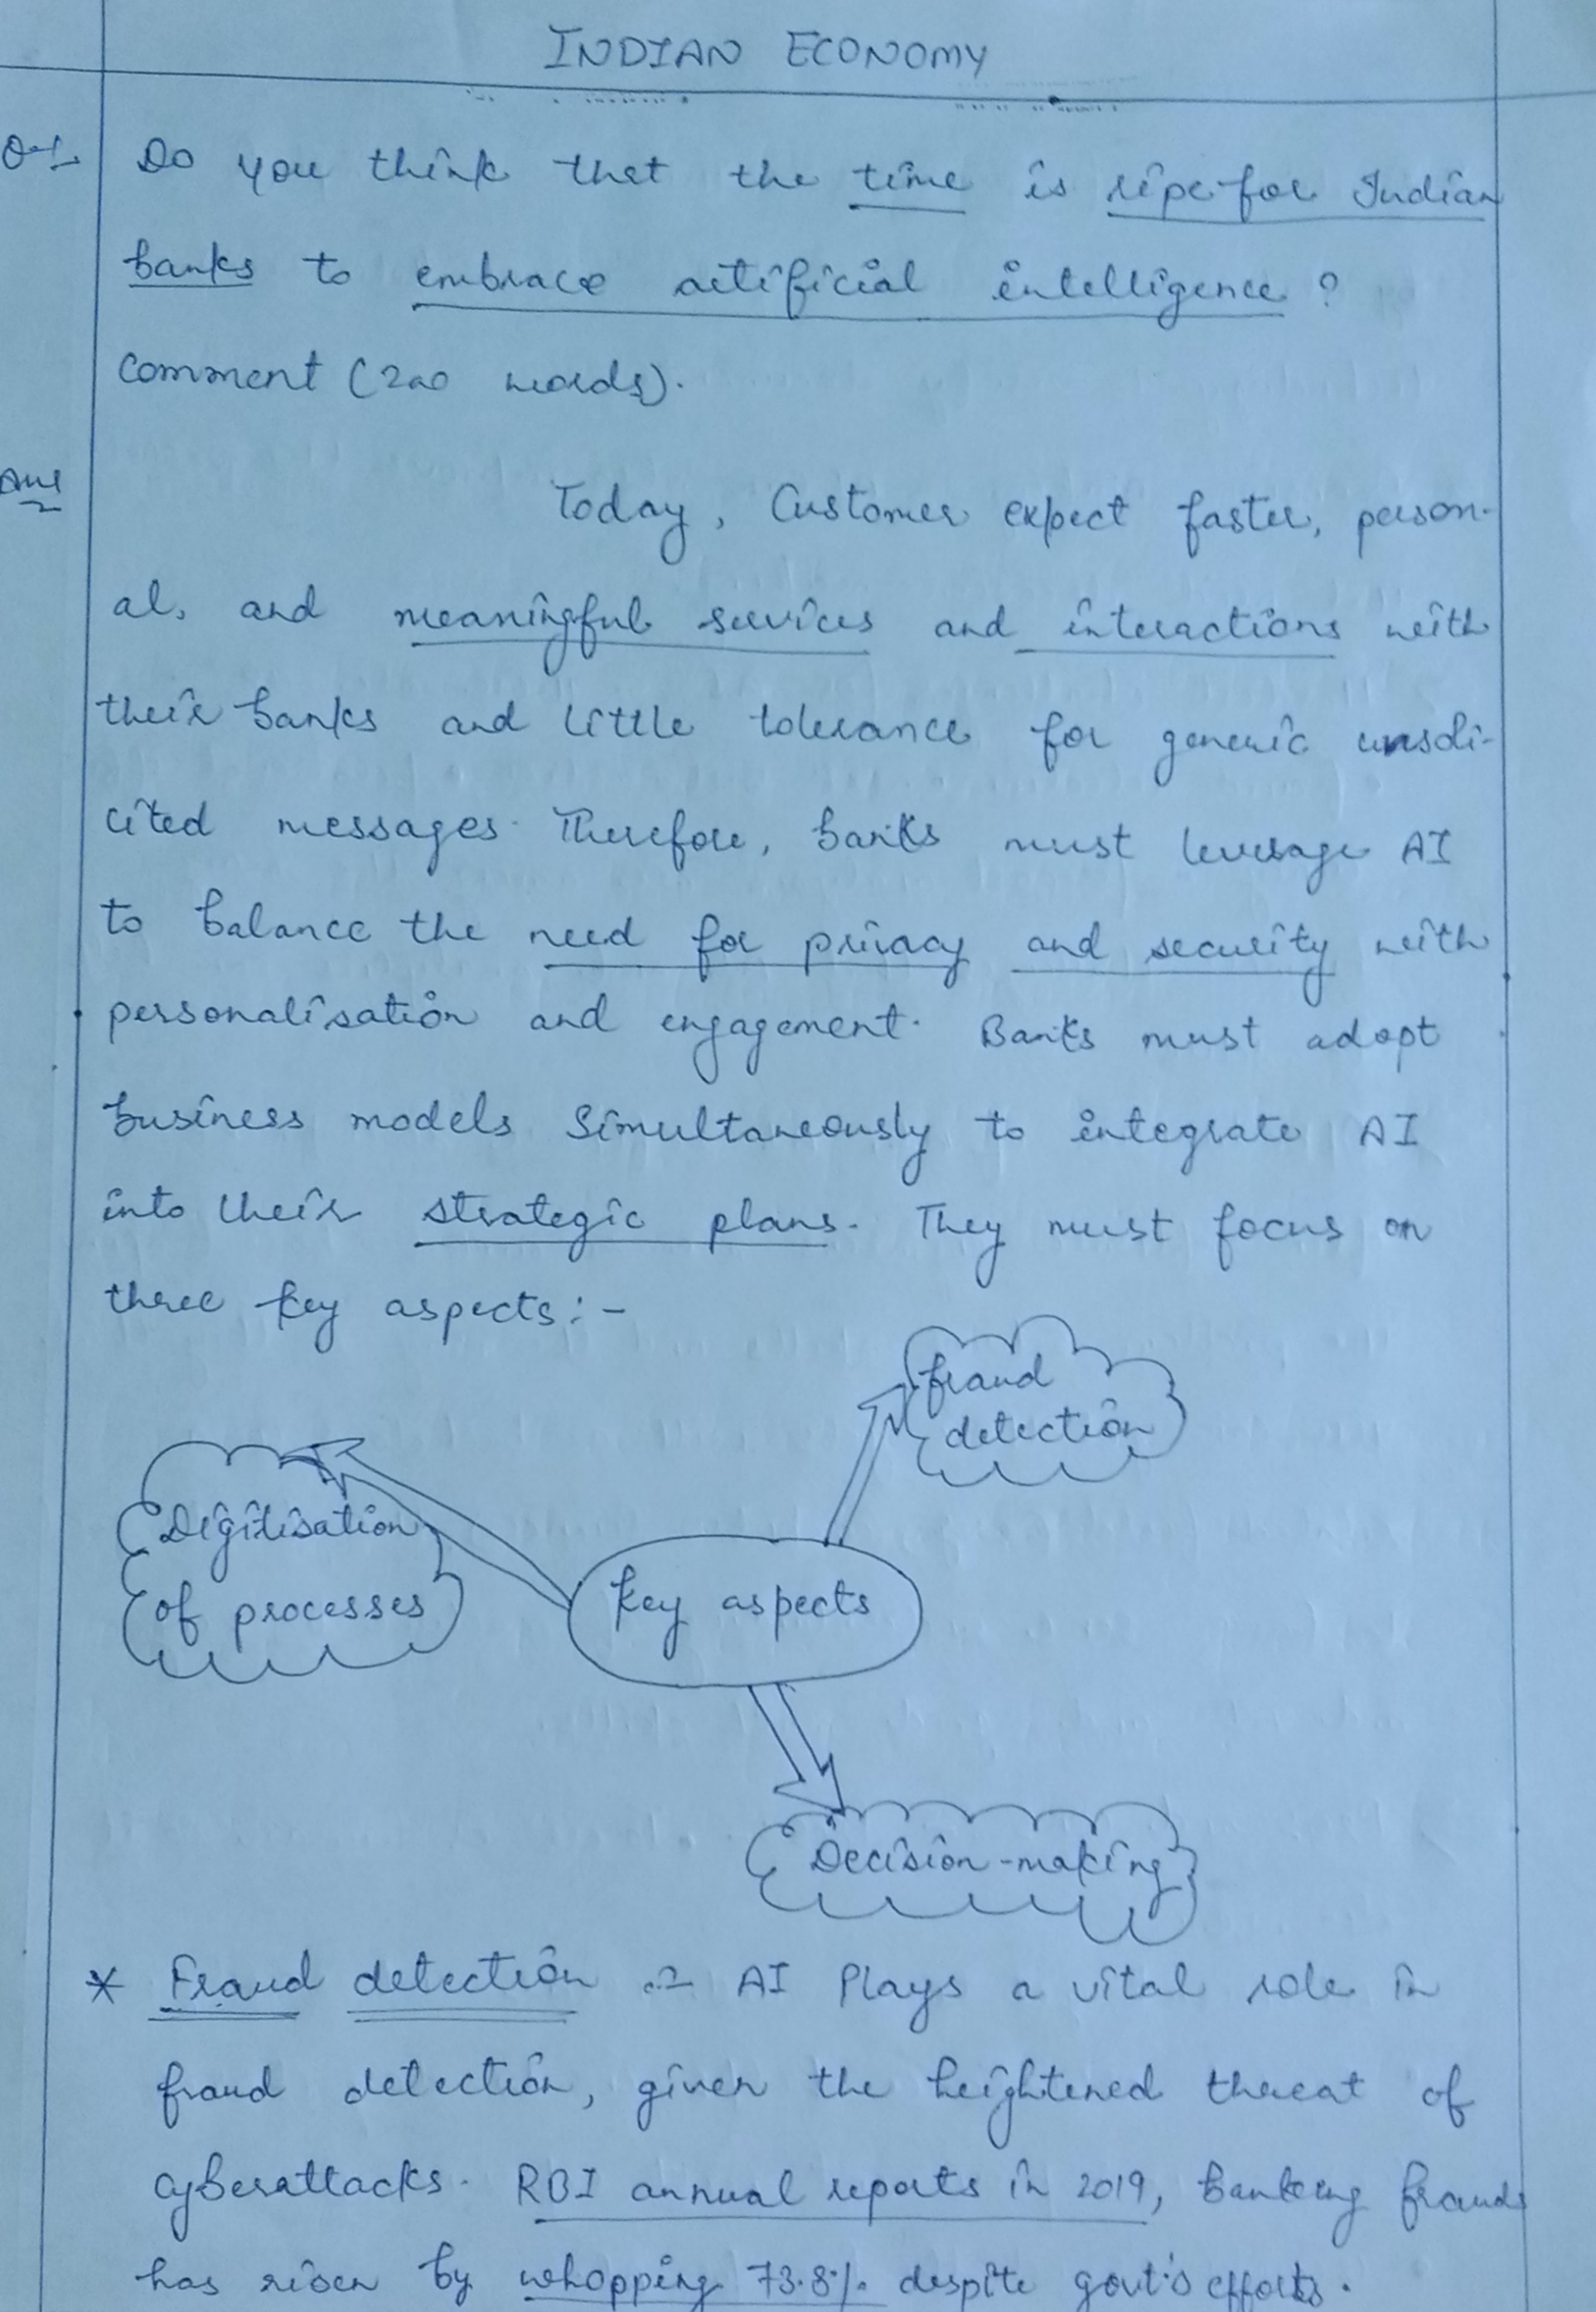 INDIAN ECONOMY
Q-1 Do you think that the time is ripe for Indian
banks to embrace artificial intelligence ?
Comment (200 words).
Ans Today, Customer expect faster, person-
al, and meaningful services and interactions with
their banks and little tolerance for generic unsoli-
cited messages. Therefore, banks must leverage AI
to balance the need for privacy and security with
personalisation and engagement. Banks must adopt
business models Simultaneously to integrate AI
into their strategic plans. They must focus on
three key aspects:-
fraud
detection
Digitisation
of processes
key aspects
Decision-making
* Fraud detection :- AI Plays a vital role in
fraud detection, given the heightened threat of
cyberattacks. RBI annual reports in 2019, banking frauds
has risen by whopping 73.8% despite govt's efforts.